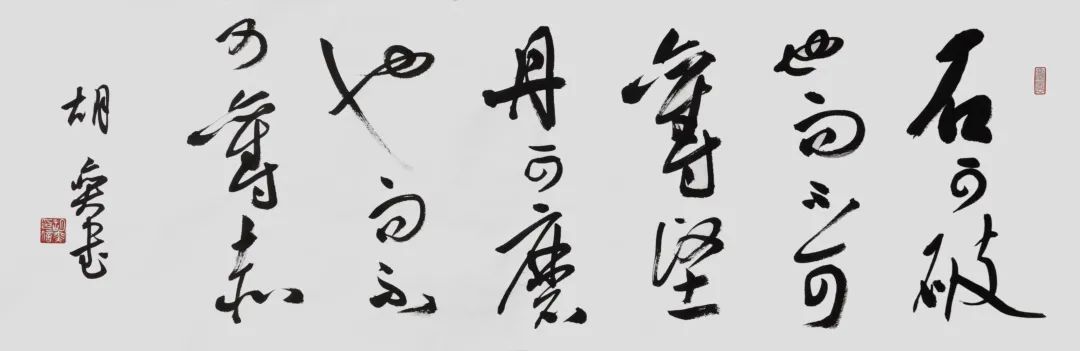 石可破
也而不可
奪堅
丹可磨
也而不
可奪赤
胡